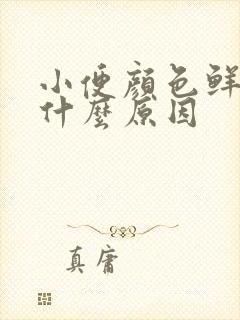 小便顏色鮮
什麼原因
真庸